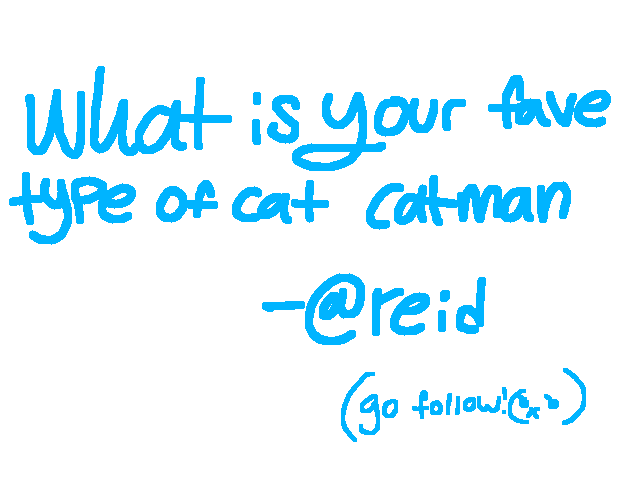 What is your fave
type of cat catman
-@reid
(go follow!(°x°)